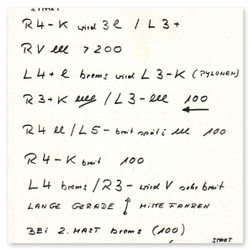 R4-K wird 3l / L3+
RV lll > 200
L4+l brems wird L3-K (PYLONEN)
R3+K / L3-lll 100
R4 ll / L5- breit lll 100
R4-K breit 100
L4 brems / R3- wird V sehr breit
LANGE GERADE ↕ MITTE FAHREN
BEI 2. MAST brems (100)
START